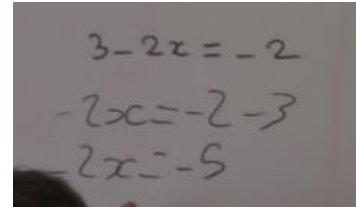 3-2x=-2
-2x=-2-3
-2x=-5